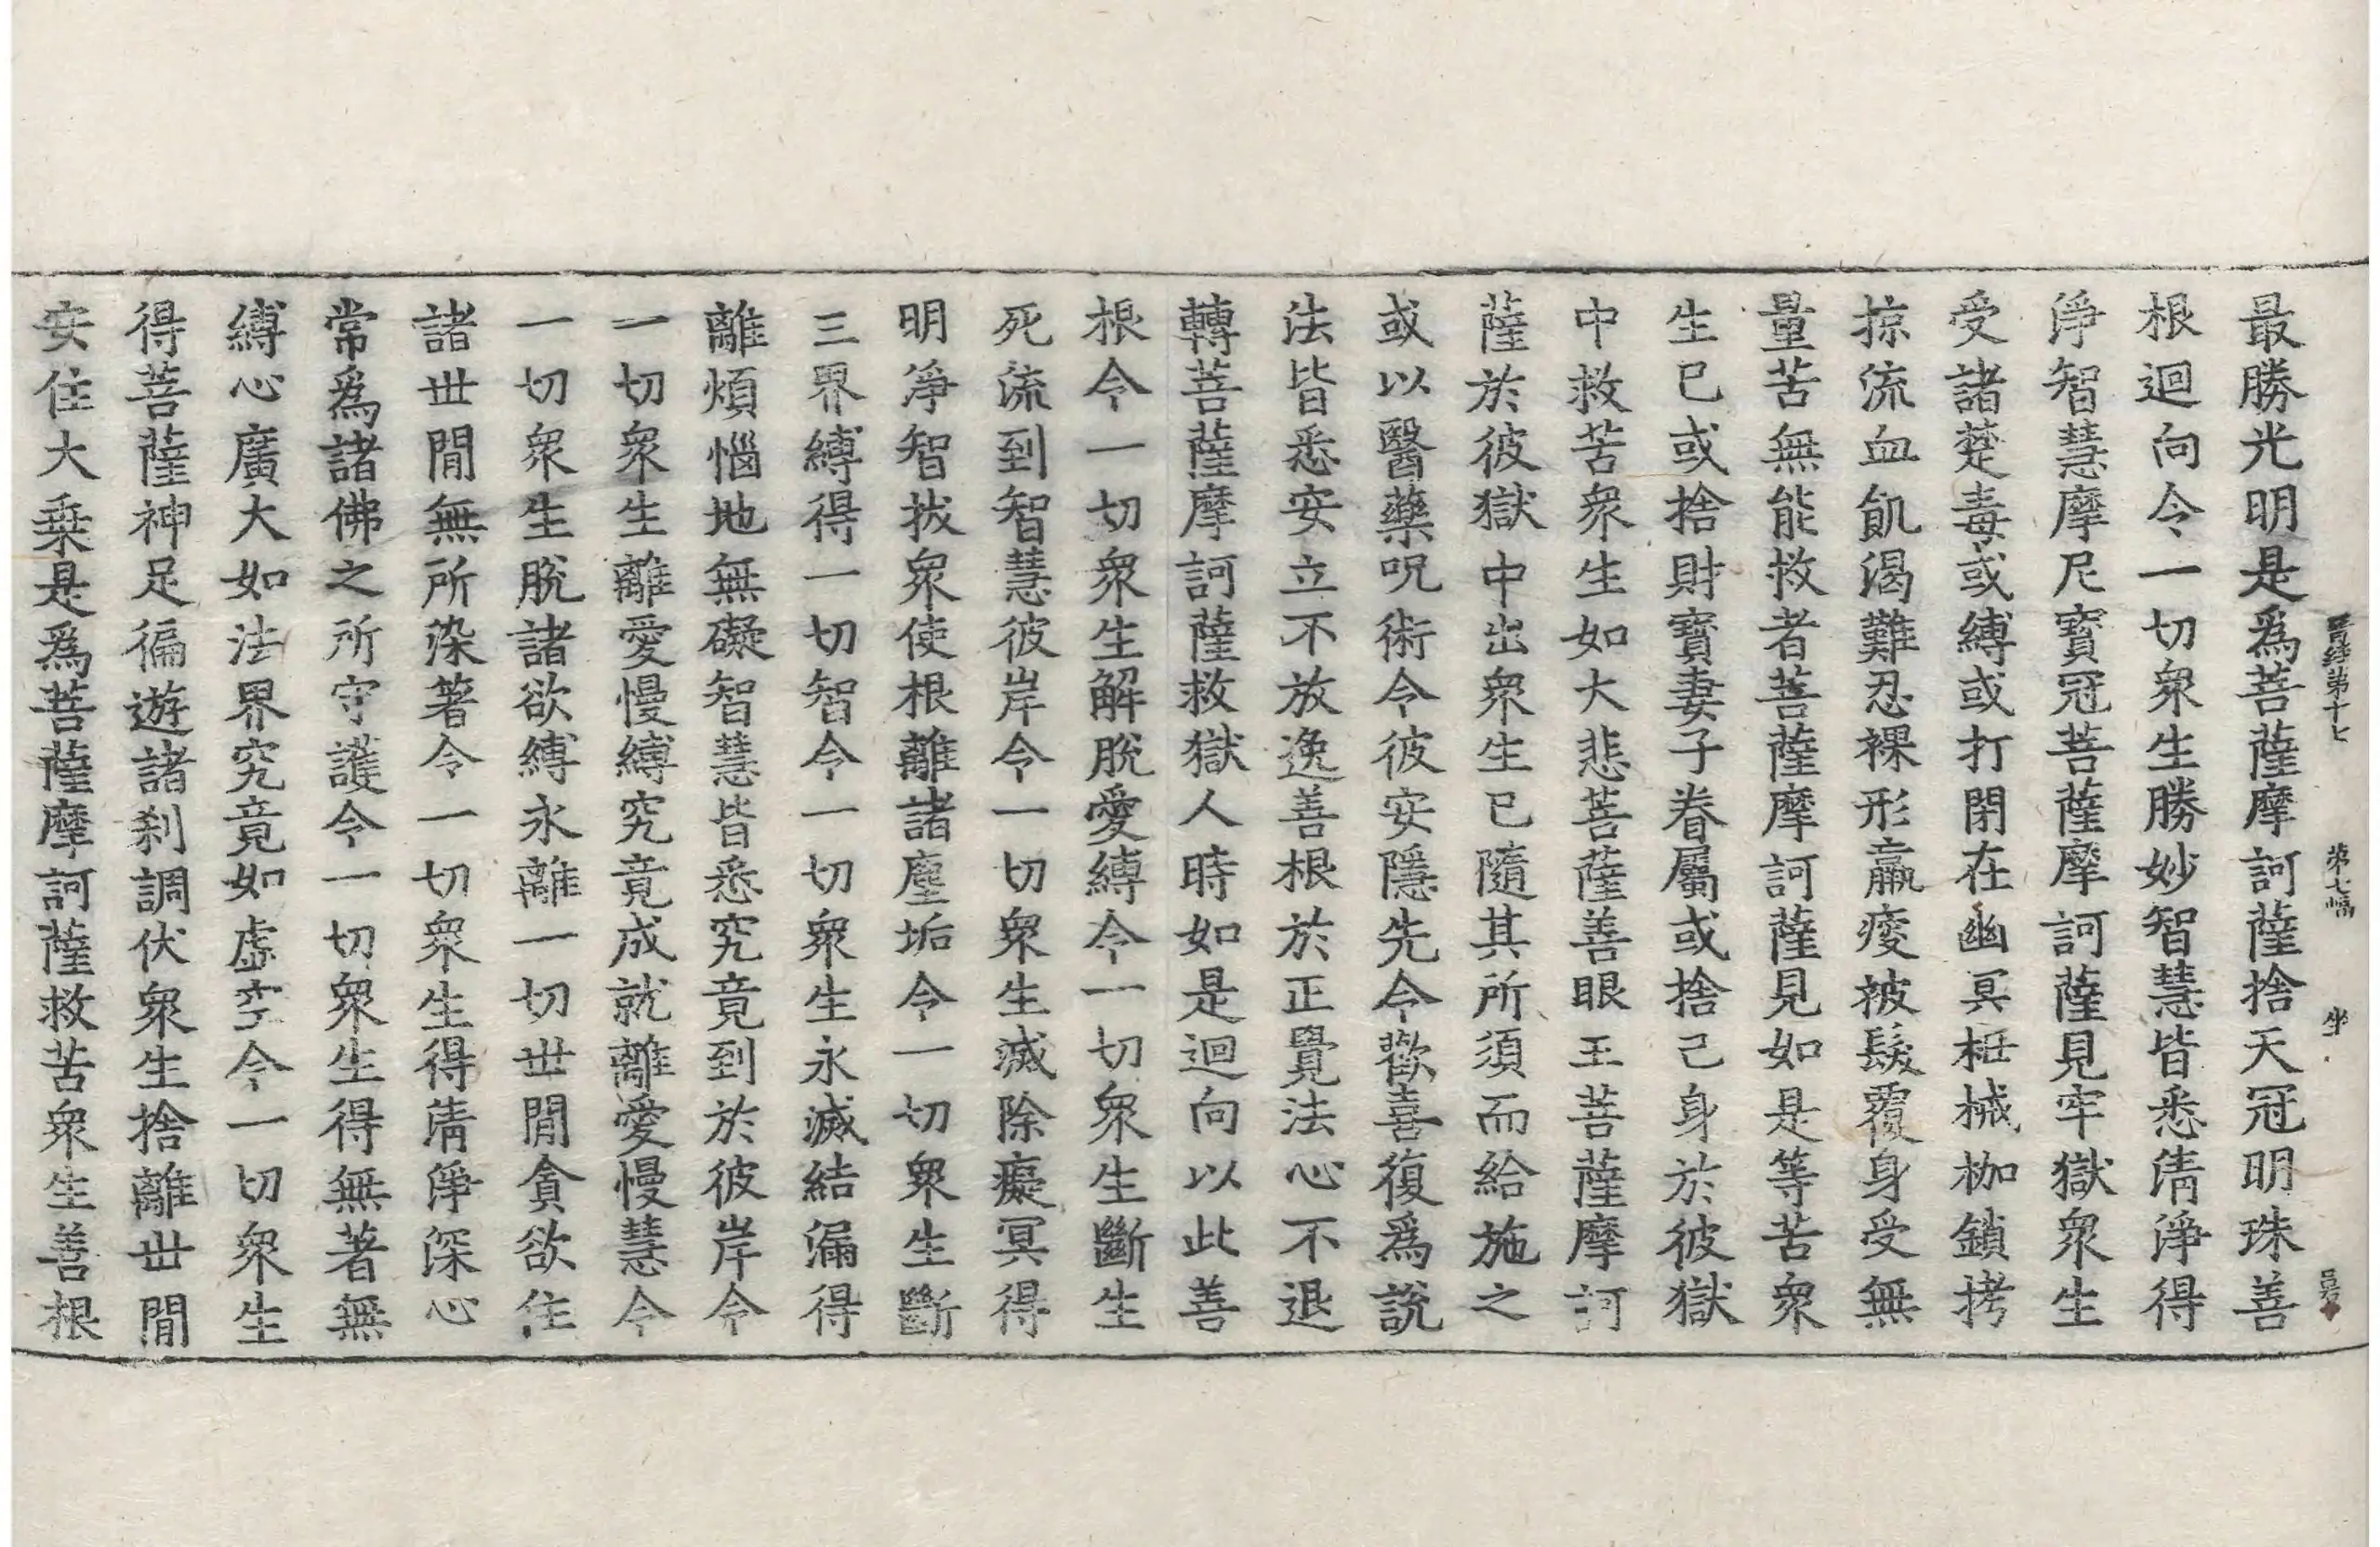 晉經第十七　第七幅　坐
最勝光明是為菩薩摩訶薩捨天冠明珠善
根迴向令一切眾生勝妙智慧皆悉清淨得
淨智慧摩尼寶冠菩薩摩訶薩見牢獄眾生
受諸楚毒或縛或打閉在幽冥杻械枷鎖拷
掠流血飢渴難忍裸形羸瘦被髮覆身受無
量苦無能救者菩薩摩訶薩見如是等苦眾
生已或捨財寶妻子眷屬或捨己身於彼獄
中救苦眾生如大悲菩薩善眼王菩薩摩訶
薩於彼獄中出眾生已隨其所須而給施之
或以醫藥呪術令彼安隱先令歡喜復為說
法皆悉安立不放逸善根於正覺法心不退
轉菩薩摩訶薩救獄人時如是迴向以此善
根令一切眾生解脫愛縛令一切眾生斷生
死流到智慧彼岸令一切眾生滅除癡冥得
明淨智拔眾使根離諸塵垢令一切眾生斷
三界縛得一切智令一切眾生永滅結漏得
離煩惱地無礙智慧皆悉究竟到於彼岸令
一切眾生離愛慢縛究竟成就離愛慢慧令
一切眾生脫諸欲縛永離一切世間貪欲住
諸世間無所染著令一切眾生得清淨深心
常為諸佛之所守護令一切眾生得無著無
縛心廣大如法界究竟如虛空令一切眾生
得菩薩神足徧遊諸剎調伏眾生捨離世間
安住大乗是為菩薩摩訶薩救苦眾生善根